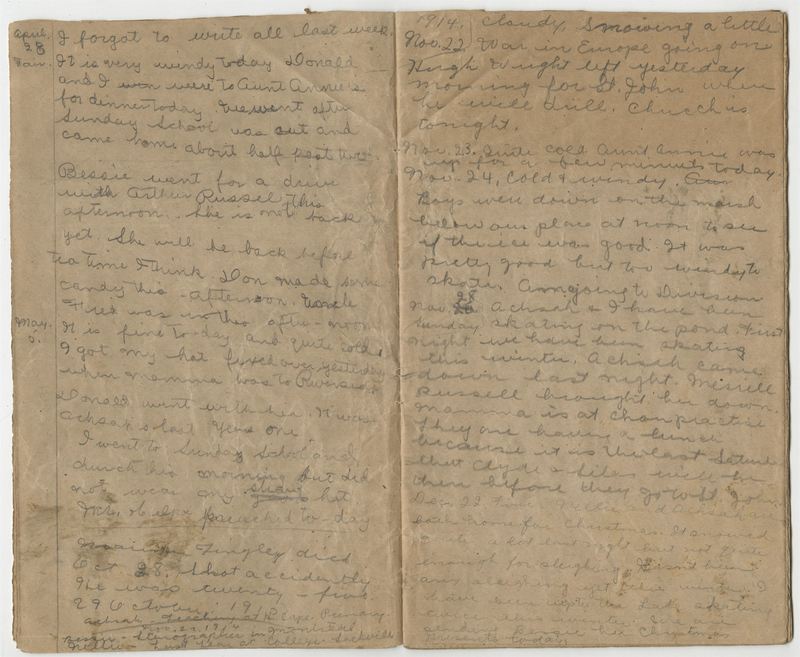 April 28 I forgot to write all last week.
Fair. It is very windy today Donald
and I were to Aunt Annie's
for dinner today. We went after
Sunday School was out and
came home about half past two.
Bessie went for a drive
with Arthur Russel this
afternoon. She is not back
yet. She will be back before
tea time I think. Don made some
candy this afternoon. Uncle
Fred was in this after-noon
May 5. It is fine to-day and quite cold
I got my hat fixed over yesterday
when mamma was to Riverside
Donald went with her. It was
Achsah's last years one
I went to Sunday School and
church this morning but did
not wear my hat
Mr. preached to-day
Tingley died
Oct 28. Shot accidently
He was twenty-five.
29 October. 1914
Achsah Teaching at Cape
Nov. 22, 1914
Bessie Stenographer in Montreal
Nellie last year at College. Sackville
1914. Cloudy, Snowing a little
Nov. 22. War in Europe going on.
Hugh Wright left yesterday
morning for St. John where
he will drill. Church is
tonight.
Nov. 23. Quite cold Aunt Annie was
up for a few minuts today.
Nov. 24. Cold & windy.
Boys were down on the marsh
below our place at noon to see
if the ice was good. It was
pretty good but too windy to
skate. Am going to Division
Nov. 28 Achsah & I have been
Sunday skating on the pond. First
night we have been skating
this winter. Achsah came
down last night. Merrill
Russell brought her down.
Mamma is at choir practise
They are having a lunch
because it is the last Saturd
that Clyde & Silas will be
there before they go to St. John
Dec. 22 Nellie and Achsah are
both home for Christmas. It snowed
quite a lot last night but not quite
enough for sleighing. Hasn't been
any sleighing yet this winter. I
have been up to the Lake skating
once this winter. We are
sending Bessie her Christmas
Presents today.